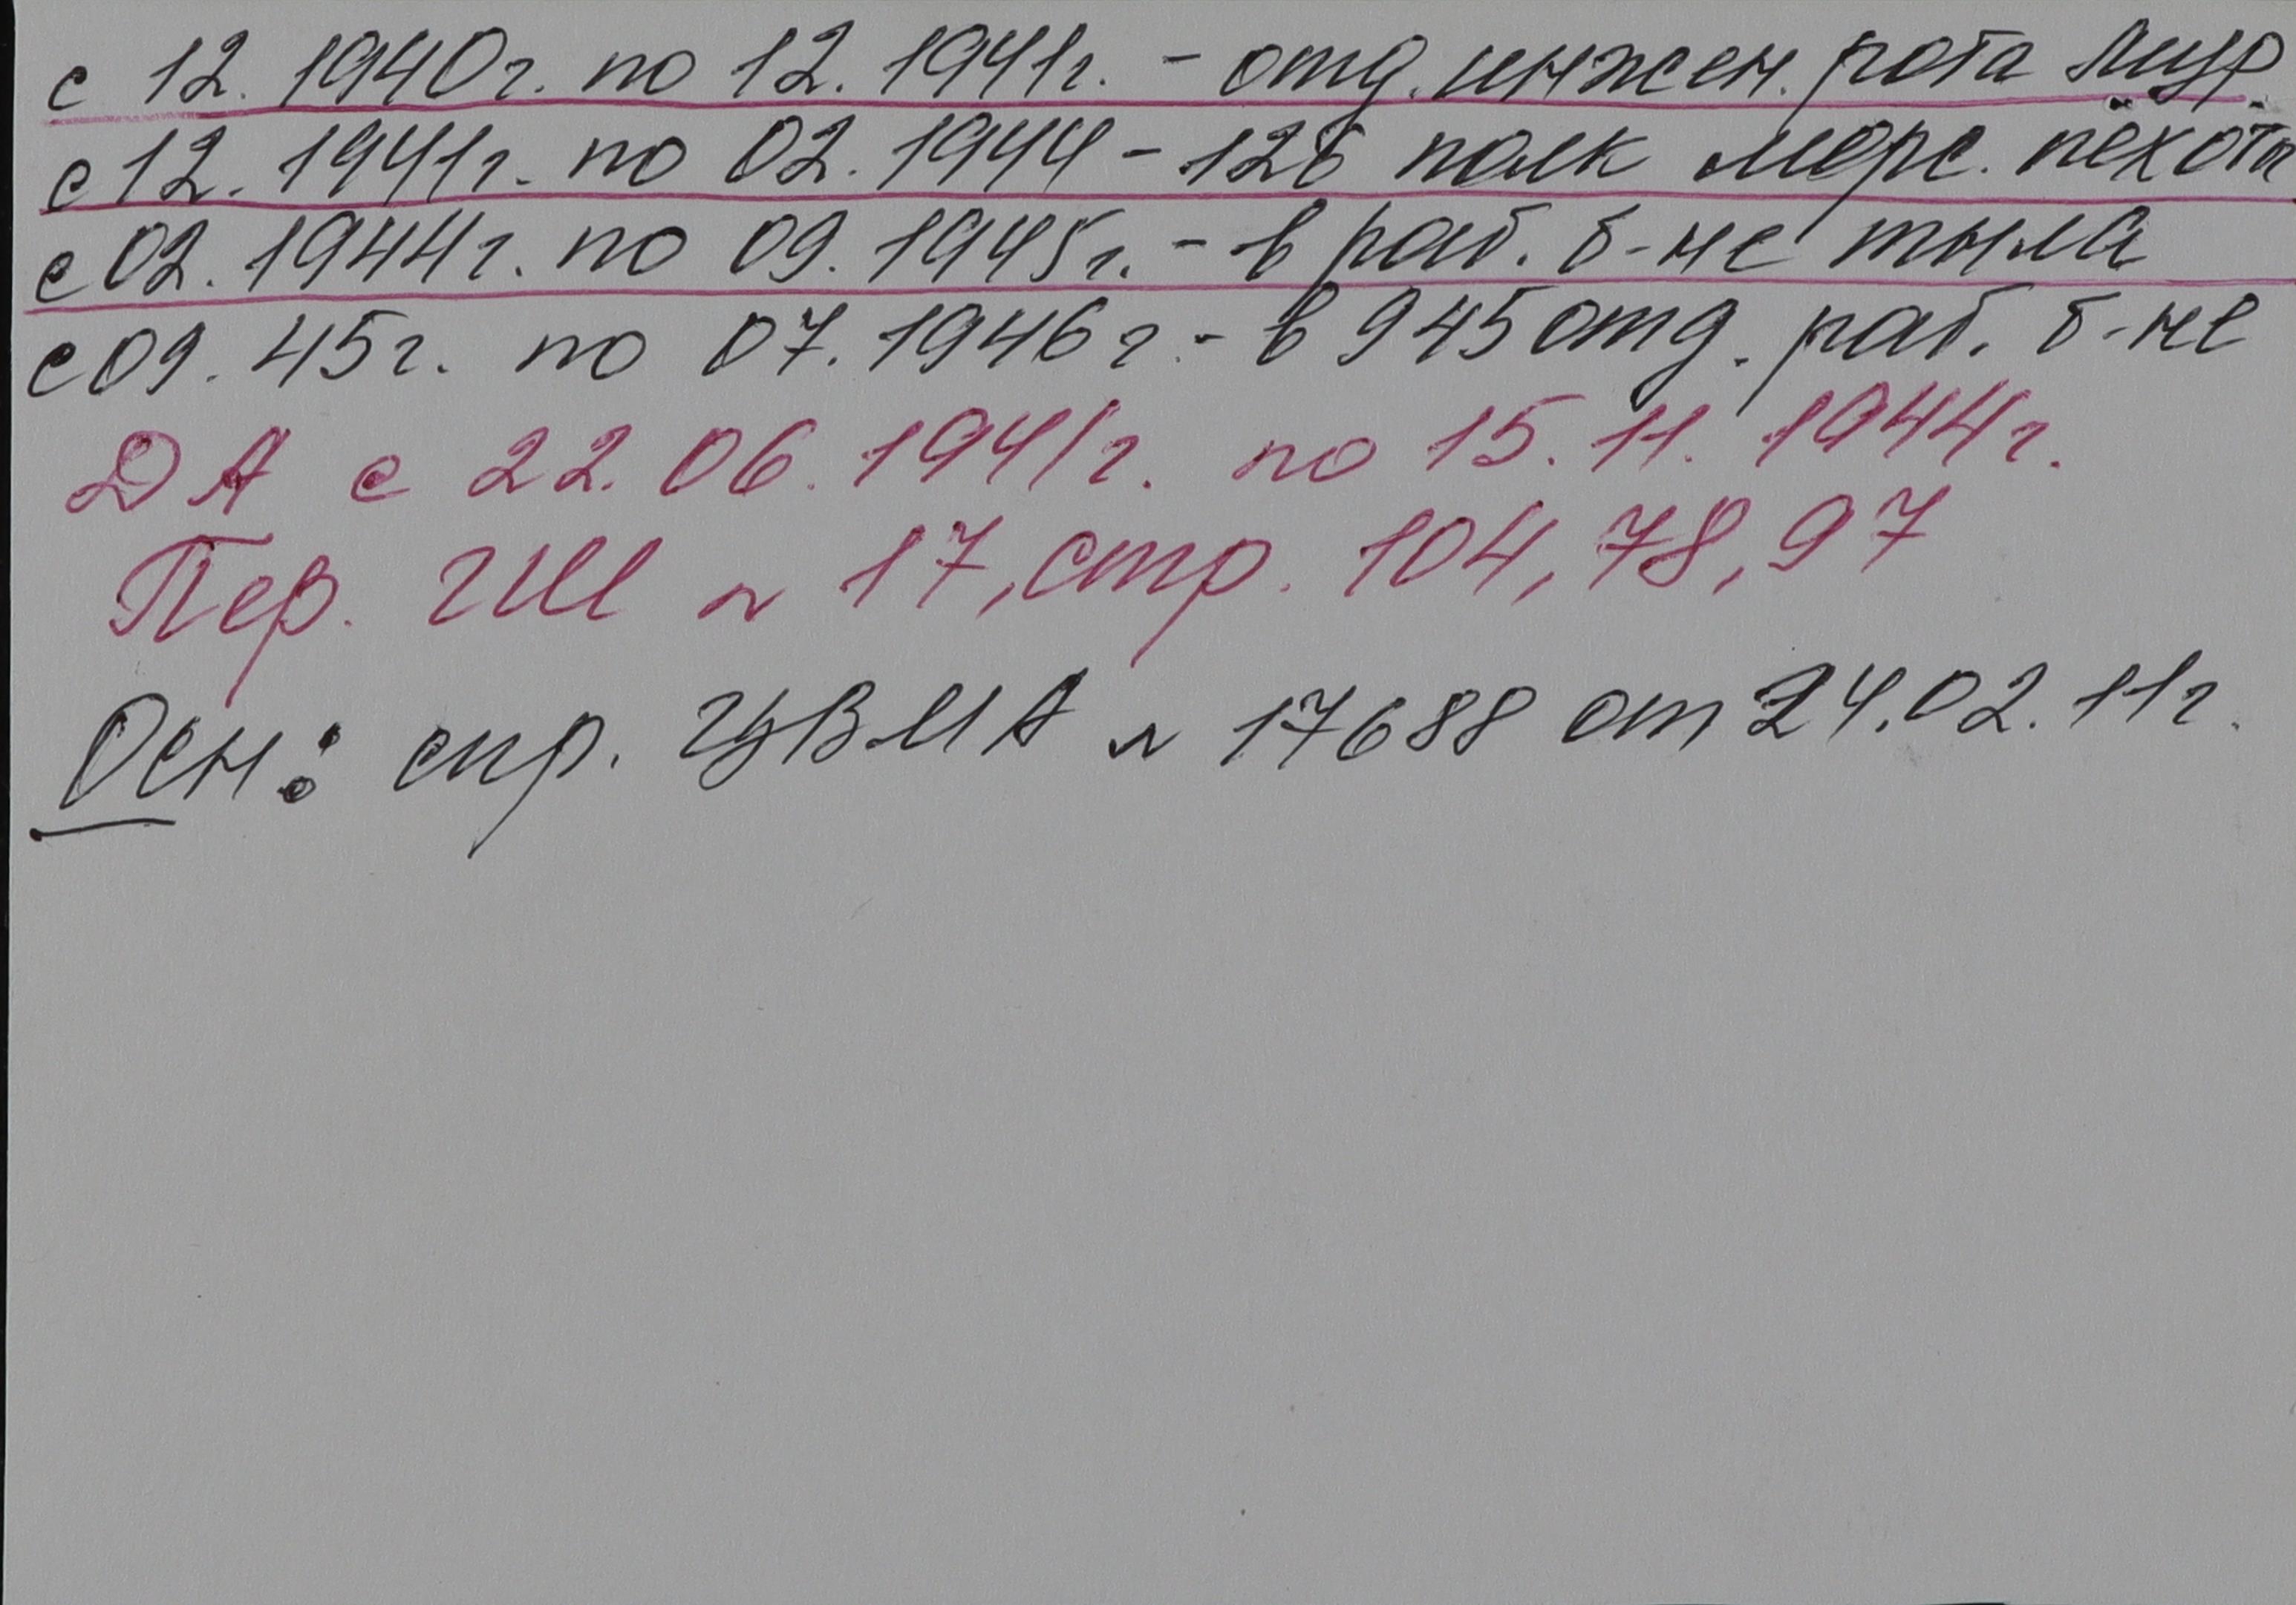 с 12. 1940г. по 12. 1941г. - отд. инжен. рота
с 12. 1941г. по 02. 1944 - 126 полк морс. пехоты
с 02. 1944г. по 09. 1945г. - в раб. б-не тыла
с 09. 45г. по 07. 1946г. - в 945 отд. раб. б-не
ДА с 22. 06. 1941г. по 15. 11. 1944г.
Пер. ГШ № 17, стр. 104, 78, 97
Осн: спр. ЦВМА № 17688 от 24.02.11г.